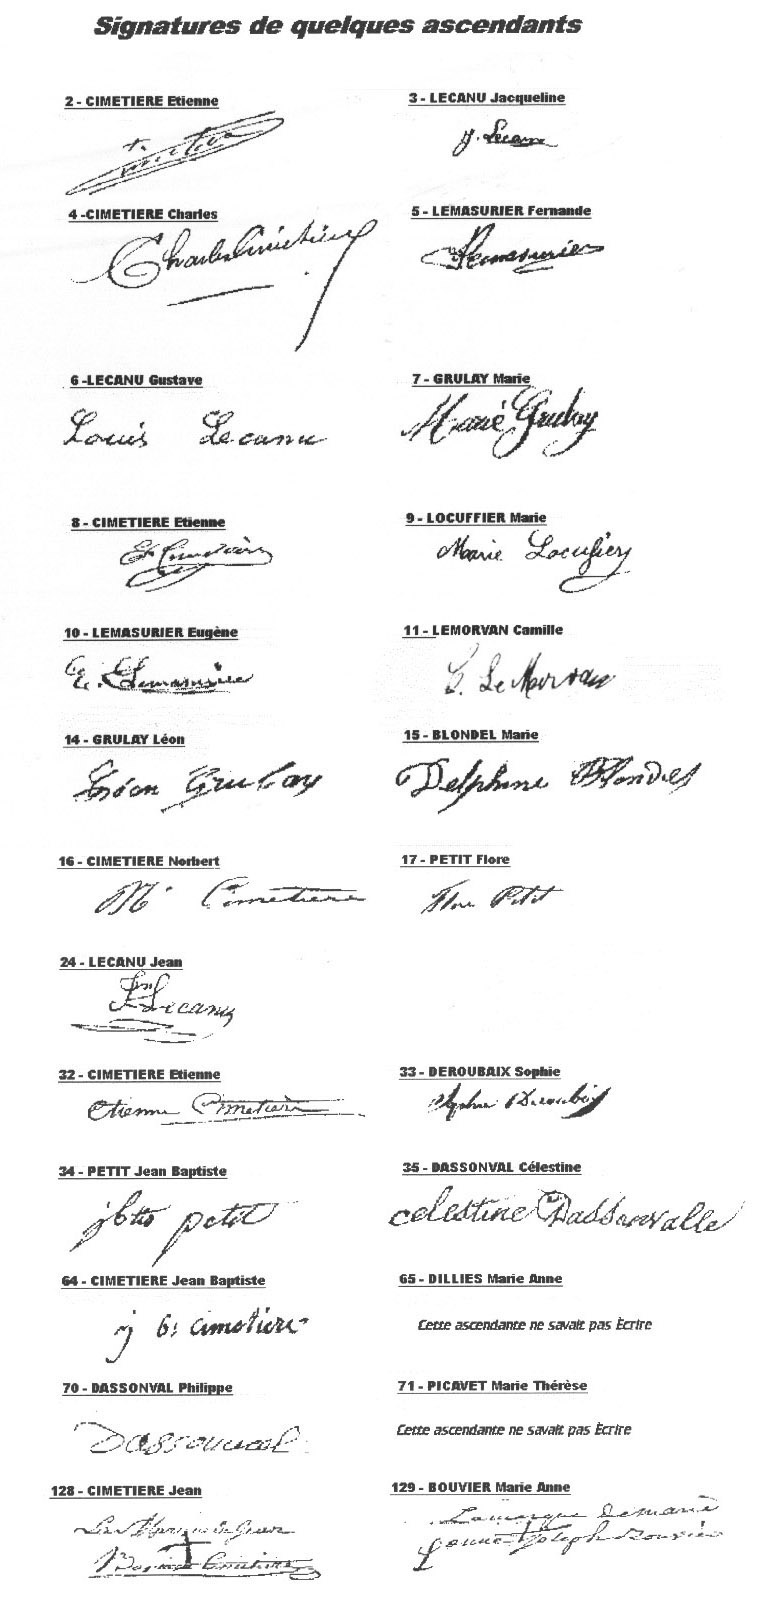 Signatures de quelques ascendants
2 - CIMETIERE Etienne
3 - LECANU Jacqueline
J. Lecanu
4 -CIMETIERE Charles
Charles Cimetière
5 - LEMASURIER Fernande
Lemasurier
6 -LECANU Gustave
Louis Lecanu
7 - GRULAY Marie
Marie Grulay
8 - CIMETIERE Etienne
Et Cimetière
9 - LOCUFFIER Marie
Marie Locufier
10 - LEMASURIER Eugène
E. Lemasurier
11 - LEMORVAN Camille
C. Le Morvan
14 - GRULAY Léon
Léon Grulay
15 - BLONDEL Marie
Delphine Blondel
16 - CIMETIERE Norbert
Cimetiere
17 - PETIT Flore
Flore Petit
24 - LECANU Jean
Jn Lecanu
32 - CIMETIERE Etienne
Etienne Cimetiere
33 - DEROUBAIX Sophie
Sophie Deroubaix
34 - PETIT Jean Baptiste
jbte petit
35 - DASSONVAL Célestine
celestine Dassonvalle
64 - CIMETIERE Jean Baptiste
j b: cimetiere
65 - DILLIES Marie Anne
Cette ascendante ne savait pas Ècrire
70 - DASSONVAL Philippe
Dassonval
71 - PICAVET Marie Thérèse
Cette ascendante ne savait pas Ècrire
128 - CIMETIERE Jean
129 - BOUVIER Marie Anne
La marque de marie
joseph Bouvier